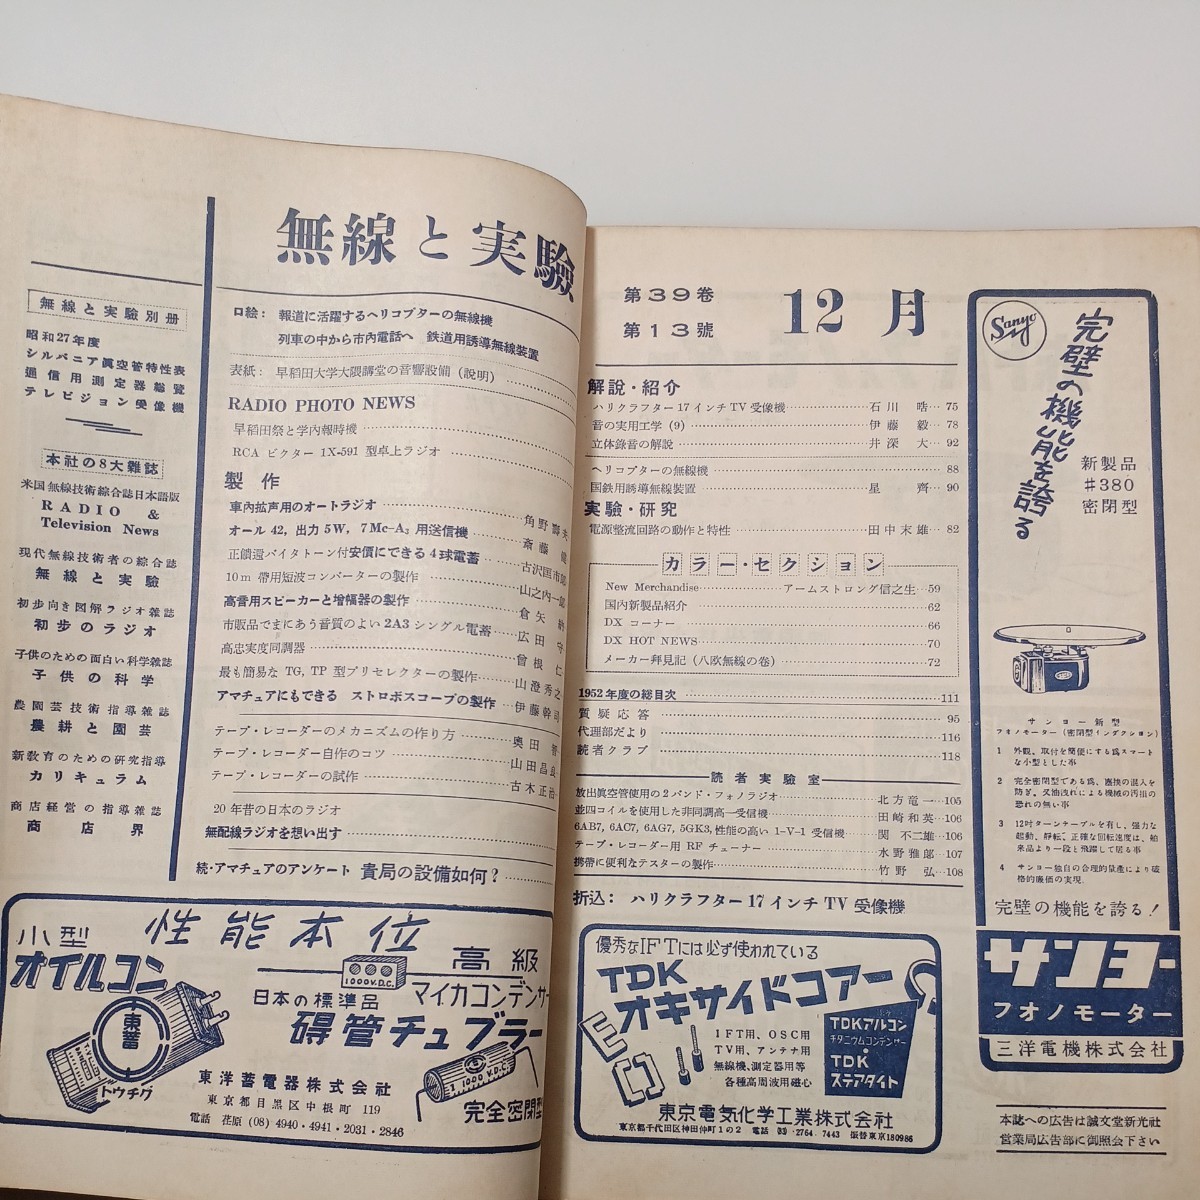 無線と実驗
無線と実驗別册
昭和27年度
シルバニア眞空管特性表
通信用測定器総覽
テレビジョン受像機
本社の8大雜誌
米国無線技術綜合誌日本語版
RADIO &
Television News
現代無線技術者の綜合誌
無線と実驗
初歩向き図解ラジオ雜誌
初歩のラジオ
子供のための面白い科学雜誌
子供の科学
農園芸技術指導雜誌
農耕と園芸
新敎育のための研究指導
カリキュラム
商店経営の指導雜誌
商店界
口絵： 報道に活躍するヘリコプターの無線機
列車の中から市內電話へ 鉄道用誘導無線裝置
表紙： 早稻田大学大隈講堂の音響設備 (說明)
RADIO PHOTO NEWS
早稻田祭と学內報時機
RCA ビクター 1X-591 型卓上ラジオ
製作
車內拡声用のオートラジオ 角野壽夫
オール 42, 出力 5W, 7 Mc-A₃ 用送信機 斎藤健
正饋還バイタトーン付安價にできる 4 球電蓄 古沢匡市郎
10 m 帶用短波コンバーターの製作 山之內一郎
高音用スピーカーと增幅器の製作 倉矢
市販品でまにあう音質のよい 2A3 シングル電蓄 広田守
高忠実度同調器 曾根仁
最も簡易な TG, TP 型プリセレクターの製作 山澄秀之
アマチュアにもできる ストロボスコープの製作 伊藤幹司
テープ・レコーダーのメカニズムの作り方 奥田
テープ・レコーダー自作のコツ 山田昌良
テープ・レコーダーの試作 古木正治
20 年昔の日本のラジオ
無配線ラジオを想い出す
続・アマチュアのアンケート 貴局の設備如何？
小型 性能本位
オイルコン
高級
1000V.D.C.
日本の標準品 マイカコンデンサー
碍管チューブラー
東蓄
トウチク
1000 V.D.C.
完全密閉型
東洋蓄電器株式会社
東京都目黒区中根町 119
電話 荏原 (08) 4940・4941・2031・2846
第39卷
第13號
12月
解說・紹介
ハリクラフター 17 インチ TV 受像機 石川晧 75
音の実用工学 (9) 伊藤毅 78
立体錄音の解說 井深大 92
ヘリコプターの無線機 88
国鉄用誘導無線裝置 星齊 90
実驗・研究
電源整流回路の動作と特性 田中末雄 82
カラー・セクション
New Merchandise アームストロング信之生 59
国內新製品紹介 62
DX コーナー 66
DX HOT NEWS 70
メーカー拜見記 (八欧無線の卷) 72
1952年度の総目次 111
質疑応答 95
代理部だより 116
読者クラブ 118
読者実驗室
放出眞空管使用の 2 バンド・フォノラジオ 北方竜一 105
並四コイルを使用した非同調高一受信機 田崎和英 106
6AB7, 6AC7, 6AG7, 5GK3, 性能の高い 1-V-1 受信機 関不二雄 106
テープ・レコーダー用 RF チューナー 水野雅郎 107
携帶に便利なテスターの製作 竹野弘 108
折込： ハリクラフター 17 インチ TV 受像機
優秀なIFTには必ず使われている
TDK
オキサイドコアー
IFT用、OSC用
TV用、アンテナ用
無線機、測定器用等
各種高周波用磁心
TDKアルコン
チタニウムコンデンサー
TDK
ステアタイト
東京電気化学工業株式会社
東京都千代田区神田仲町1の2 電話 (83) 2764, 7443 振替東京180986
Sanyo
完璧の機能を誇る
新製品
#380
密閉型
サンヨー新型
フオノモーター (密閉型インダクション)
1 外観、取付を簡便にする爲スマート
な小型とした事
2 完全密閉型である爲、塵埃の混入を
防ぎ、又油洩れによる機械の汚損の
恐れの無い事
3 12吋ターンテーブルを有し、强力な
起動、靜転、正確な回転速度は、舶
来品より一段と飛躍して居る事
4 サンヨー独自の合理的量產により破
格的廉価の実現。
完璧の機能を誇る！
サンヨー
フオノモーター
三洋電機株式会社
本誌への広告は誠文堂新光社
営業局広告部に御照会下さい